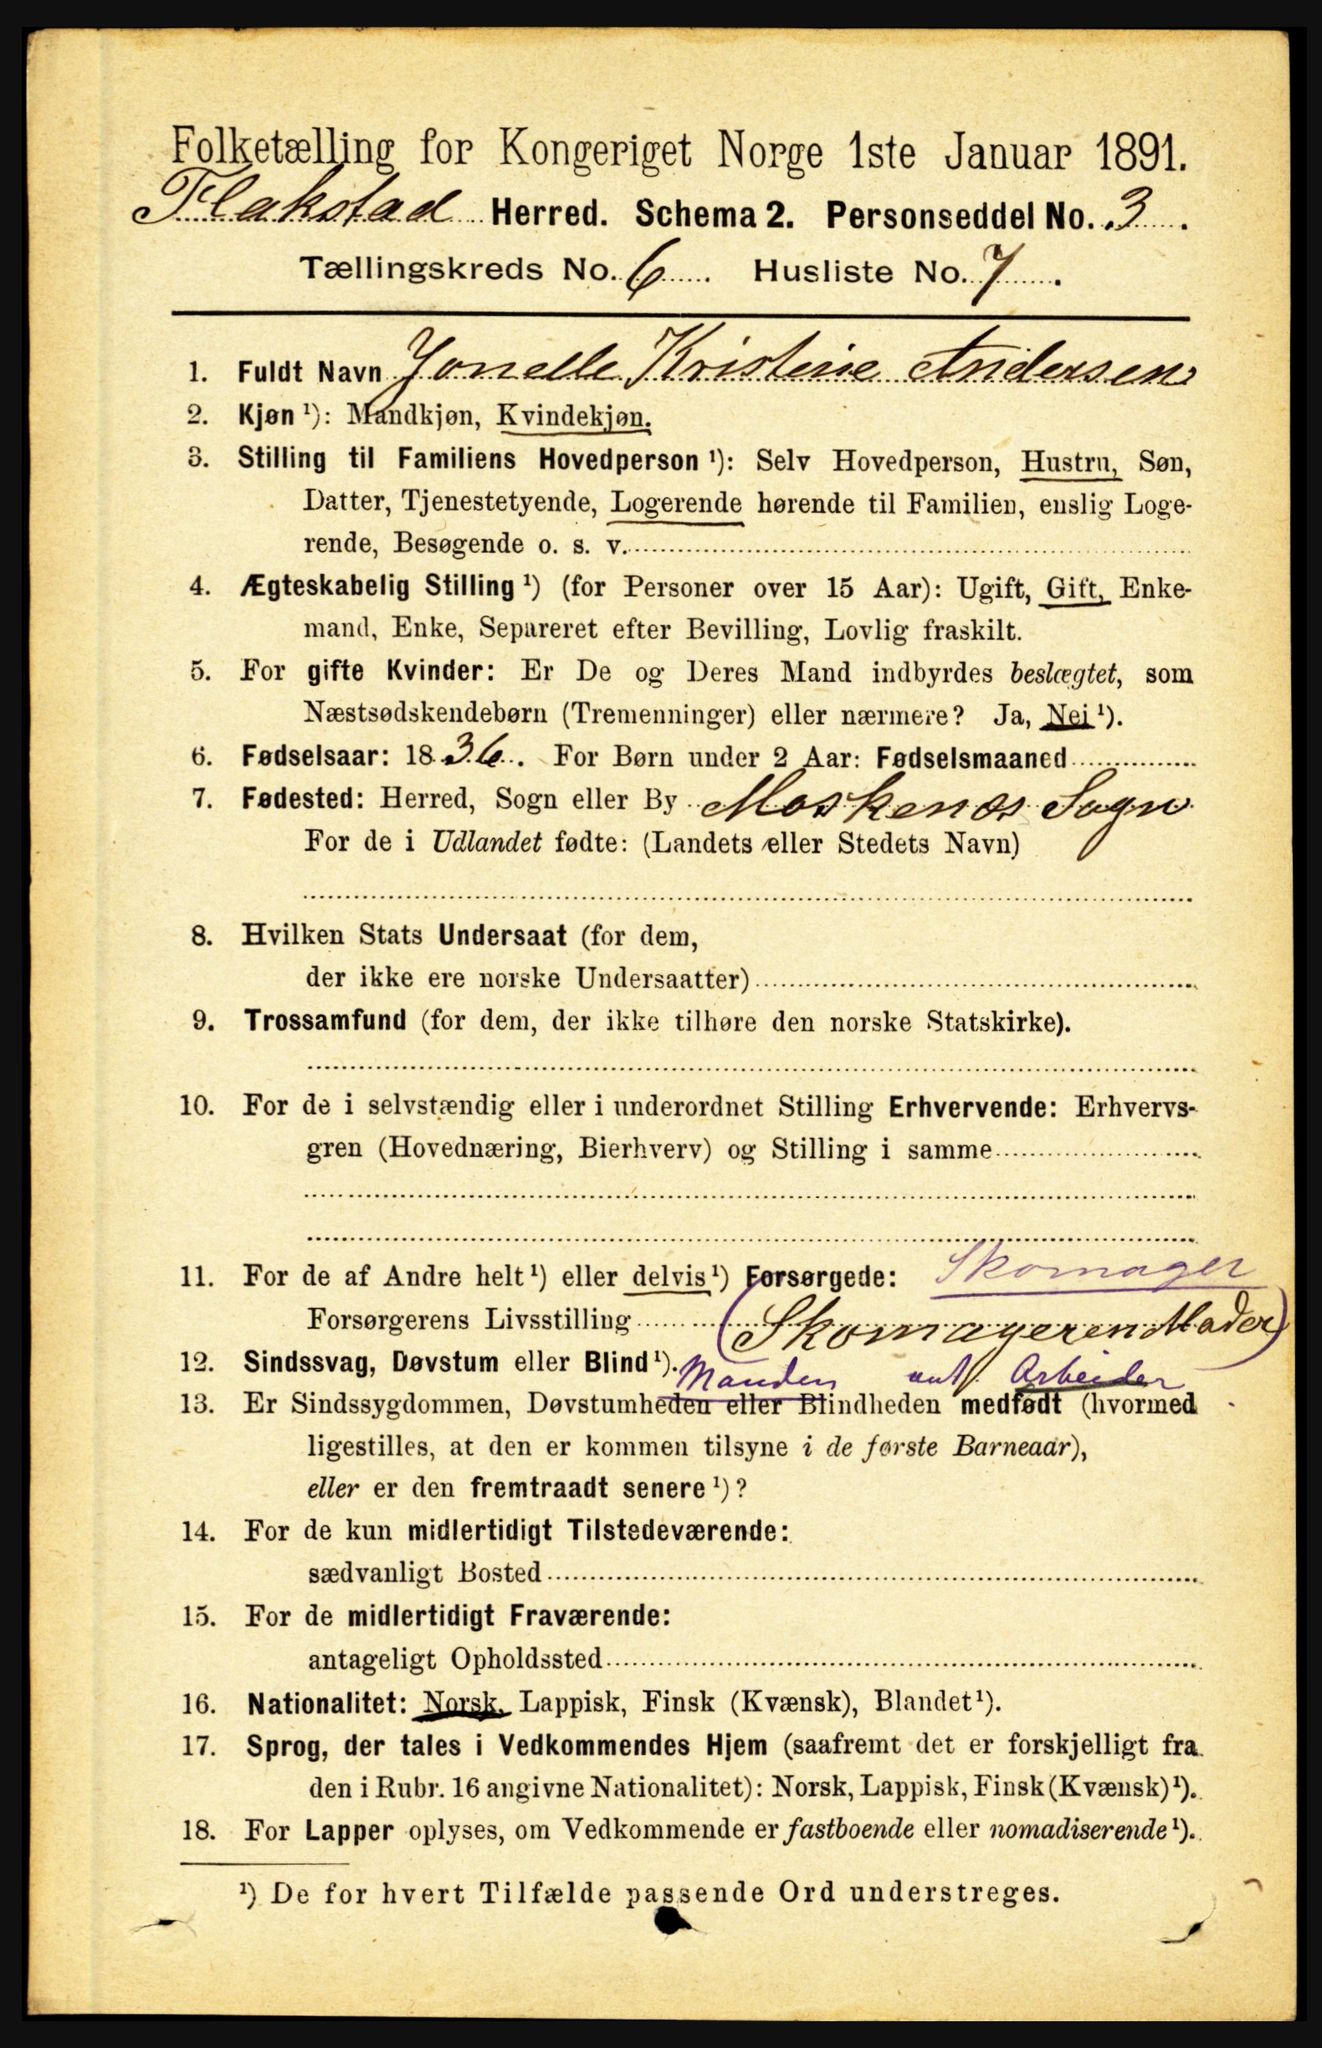 Folketælling for Kongeriget Norge 1ste Januar 1891.
Flakstad Herred. Schema 2. Personseddel No. 3.
Tællingskreds No. 6. Husliste No. 7.
1. Fuldt Navn Jonelle Kristine Andersen
2. Kjøn ¹): Mandkjøn, Kvindekjøn.
3. Stilling til Familiens Hovedperson ¹): Selv Hovedperson, Hustru, Søn,
Datter, Tjenestetyende, Logerende hørende til Familien, enslig Loge-
rende, Besøgende o. s. v.
4. Ægteskabelig Stilling ¹) (for Personer over 15 Aar): Ugift, Gift, Enke-
mand, Enke, Separeret efter Bevilling, Lovlig fraskilt.
5. For gifte Kvinder: Er De og Deres Mand indbyrdes beslægtet, som
Næstsødskendebørn (Tremenninger) eller nærmere? Ja, Nei ¹).
6. Fødselsaar: 1836. For Børn under 2 Aar: Fødselsmaaned
7. Fødested: Herred, Sogn eller By Moskenæs Sogn
For de i Udlandet fødte: (Landets eller Stedets Navn)
8. Hvilken Stats Undersaat (for dem,
der ikke ere norske Undersaatter)
9. Trossamfund (for dem, der ikke tilhøre den norske Statskirke).
10. For de i selvstændig eller i underordnet Stilling Erhvervende: Erhvervs-
gren (Hovednæring, Bierhverv) og Stilling i samme
11. For de af Andre helt ¹) eller delvis ¹) Forsørgede: Skomager
Forsørgerens Livsstilling (Skomageren Moder)
12. Sindssvag, Døvstum eller Blind ¹). Manden Arbeider
13. Er Sindssygdommen, Døvstumheden eller Blindheden medfødt (hvormed
ligestilles, at den er kommen tilsyne i de første Barneaar),
eller er den fremtraadt senere ¹)?
14. For de kun midlertidigt Tilstedeværende:
sædvanligt Bosted
15. For de midlertidigt Fraværende:
antageligt Opholdssted
16. Nationalitet: Norsk, Lappisk, Finsk (Kvænsk), Blandet ¹).
17. Sprog, der tales i Vedkommendes Hjem (saafremt det er forskjelligt fra
den i Rubr. 16 angivne Nationalitet): Norsk, Lappisk, Finsk (Kvænsk) ¹).
18. For Lapper oplyses, om Vedkommende er fastboende eller nomadiserende ¹).
¹) De for hvert Tilfælde passende Ord understreges.